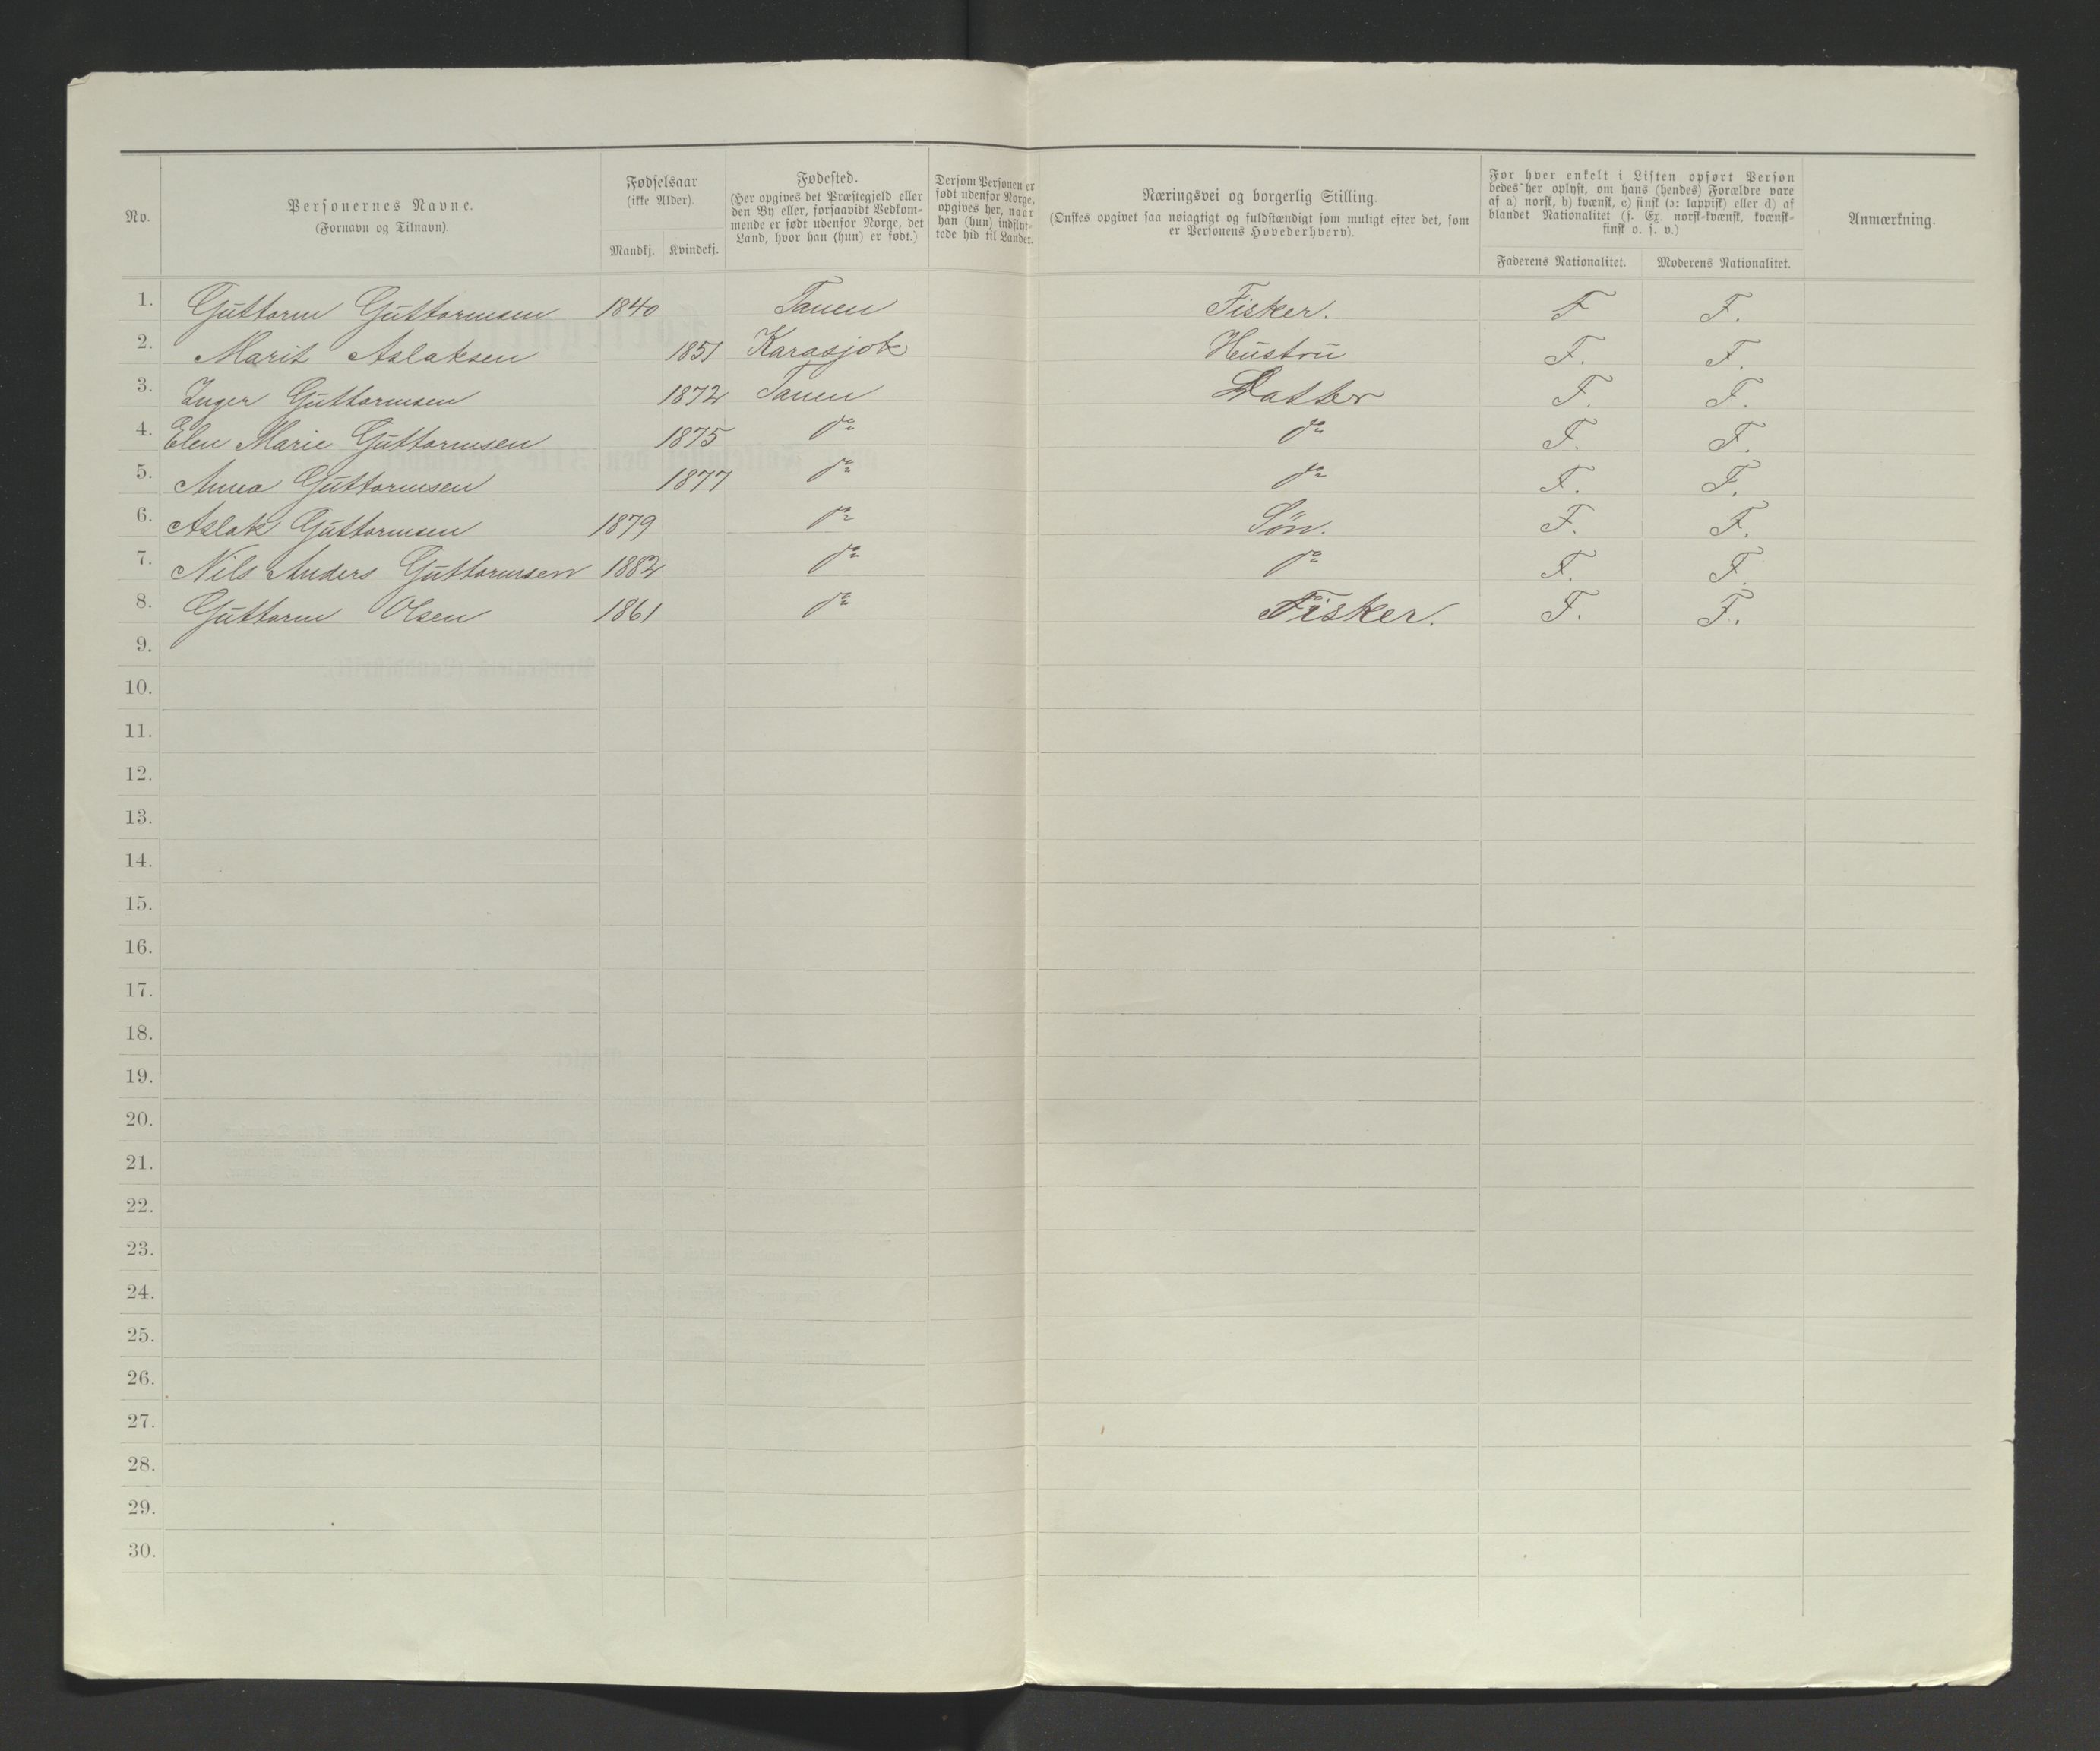 No.
Personernes Navne.
(Fornavn og Tilnavn).
Fødselsaar
(ikke Alder).
Mandkj. Kvindekj.
Fødested.
(Her opgives det Præstegjeld eller
den By eller, forsaavidt Vedkom-
mende er født udenfor Norge, det
Land, hvor han (hun) er født.)
Dersom Personen er
født udenfor Norge,
opgives her, naar
han (hun) indflyt-
tede hid til Landet.
Næringsvei og borgerlig Stilling.
(Ønskes opgivet saa nøiagtigt og fuldstændigt som muligt efter det, som
er Personens Hovederhverv).
For hver enkelt i Listen opført Person
bedes her oplyst, om hans (hendes) Forældre vare
af a) norsk, b) kvænsk, c) finsk (ɔ: lappisk) eller d) af
blandet Nationalitet (f. Ex. norsk-kvænsk, kvænsk-
finsk o. s. v.)
Faderens Nationalitet. Moderens Nationalitet.
Anmærkning.
1. Guttorm Guttormsen 1840 Tanen Fisker. F F.
2. Marit Aslaksen 1851 Karasjok Hustru F. F.
3. Inger Guttormsen 1872 Tanen Datter F. F.
4. Elen Marie Guttormsen 1875 do do F. F.
5. Anna Guttormsen 1877 do do F. F.
6. Aslak Guttormsen 1879 do Søn. F. F.
7. Nils Anders Guttormsen 1882 do do F. F.
8. Guttorm Olsen 1861 do Fisker. F. F.
9.
10.
11.
12.
13.
14.
15.
16.
17.
18.
19.
20.
21.
22.
23.
24.
25.
26.
27.
28.
29.
30.